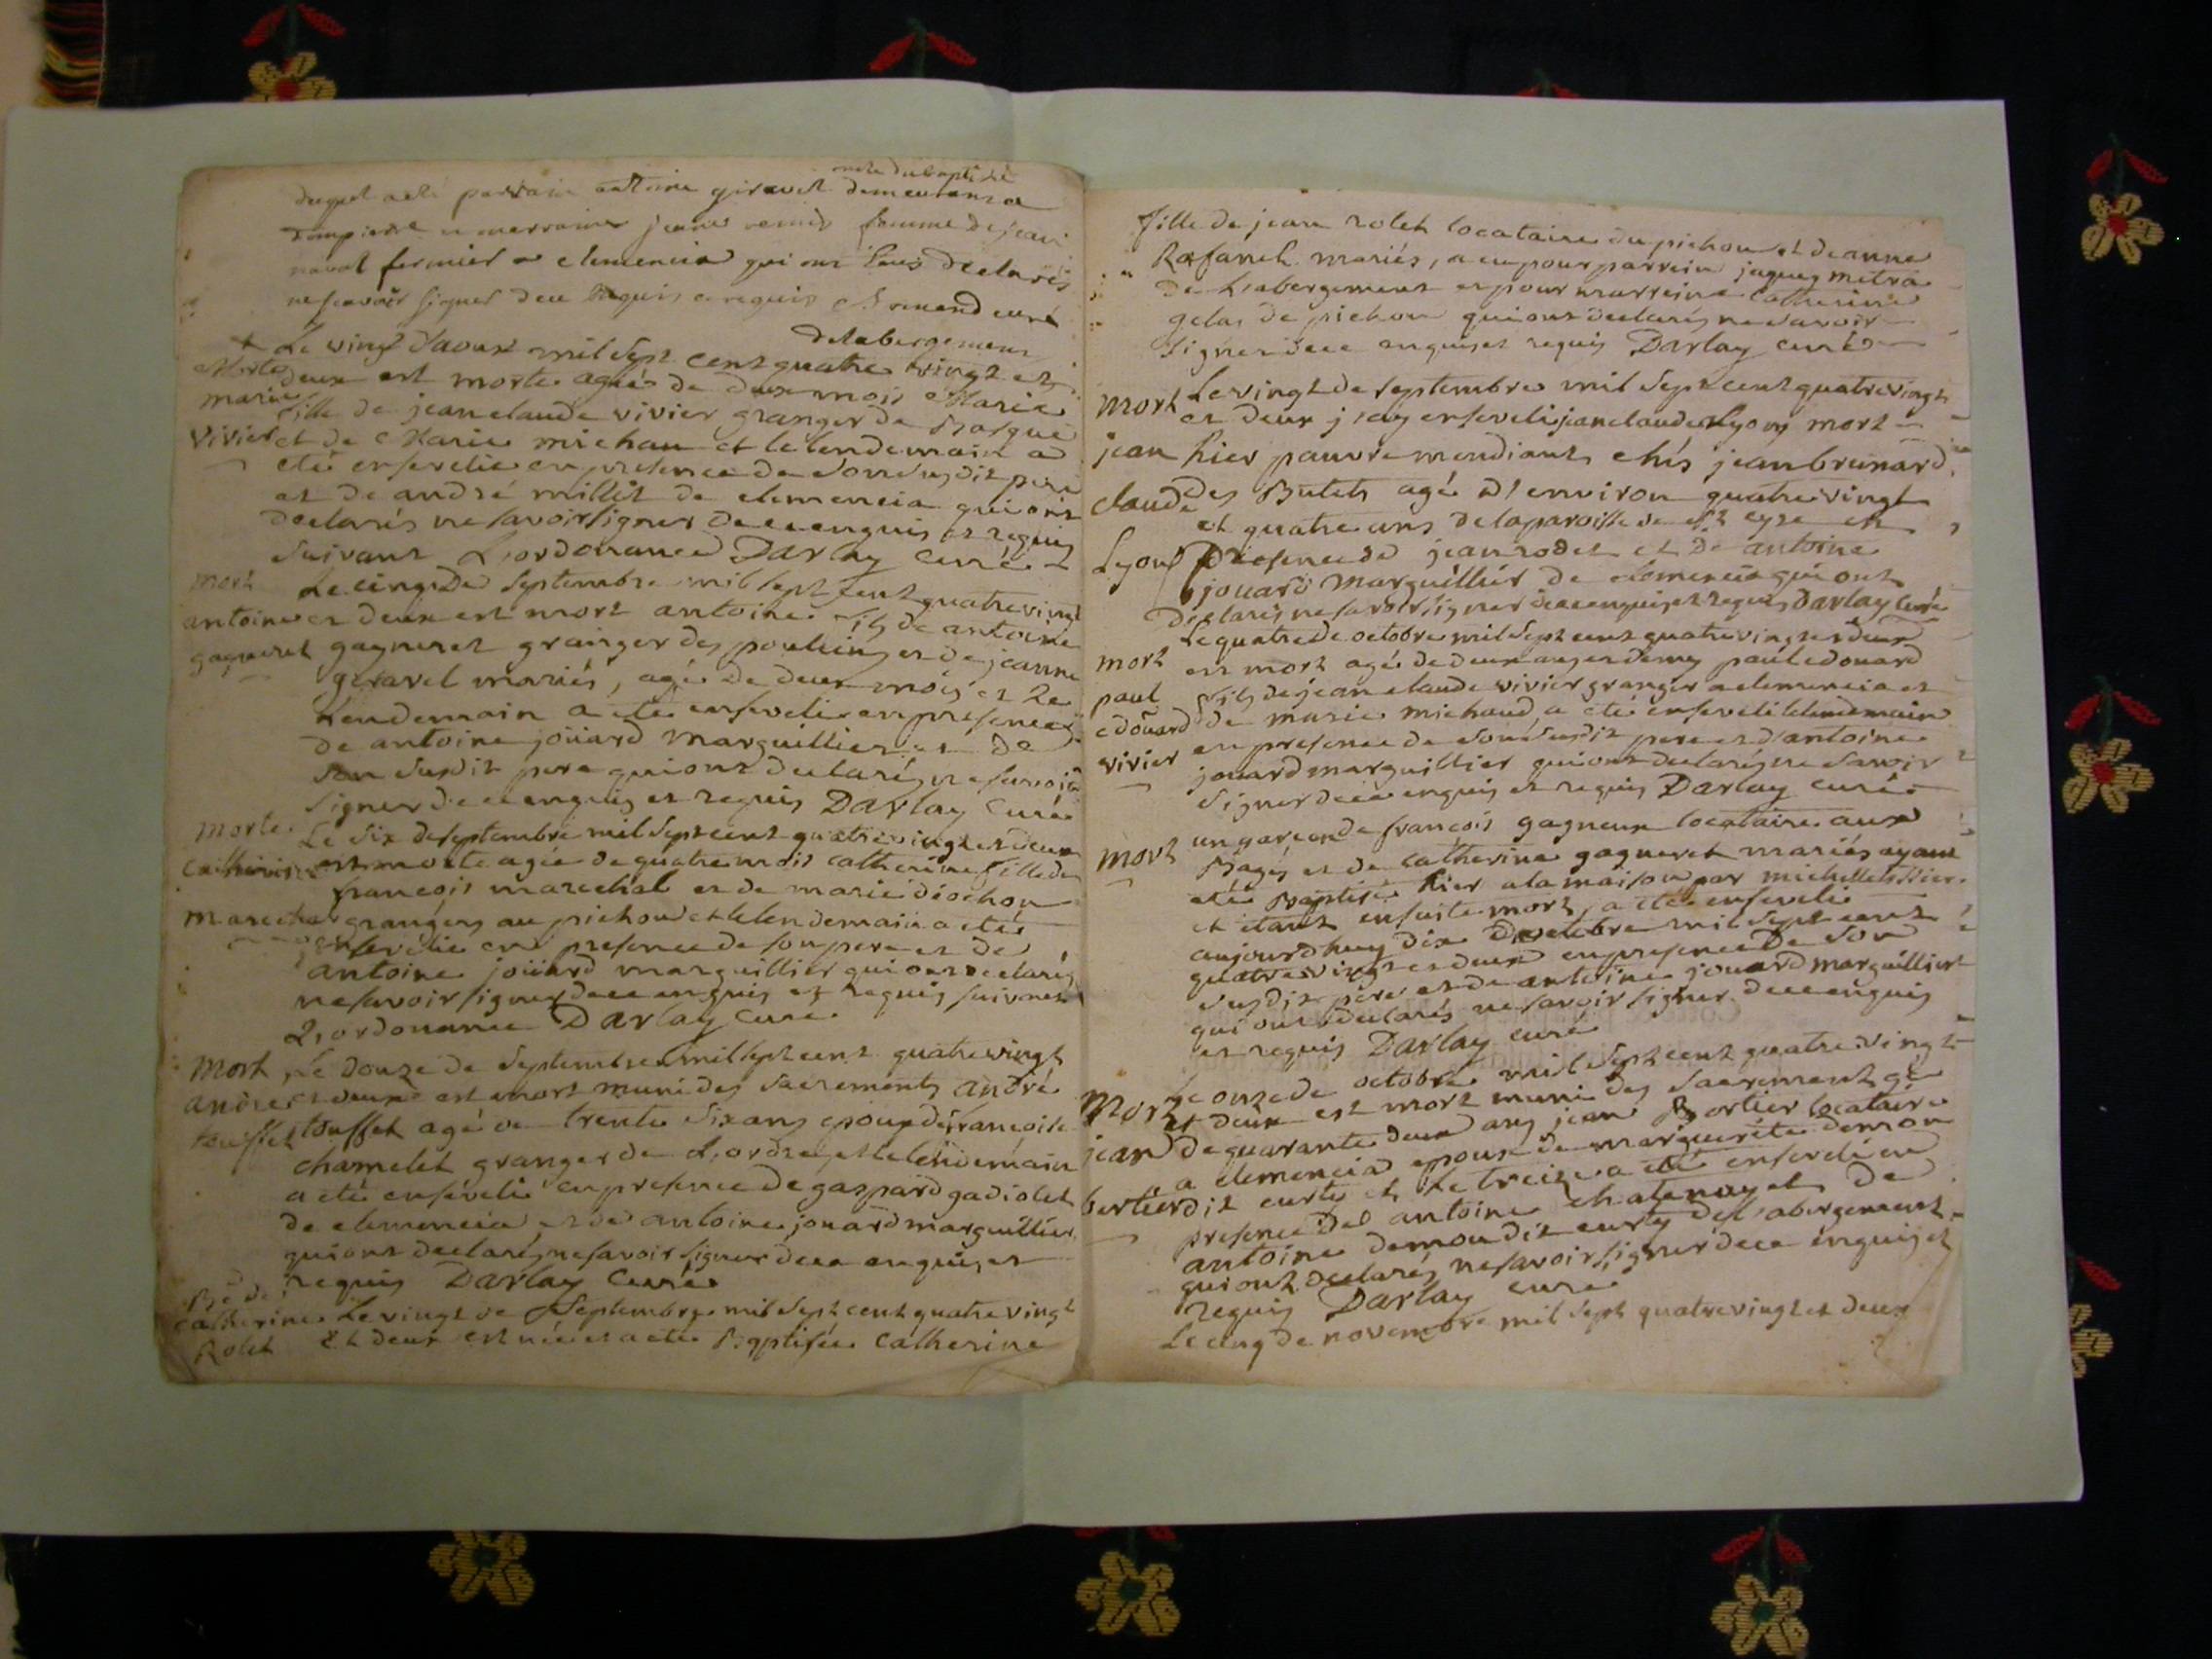 oncle du baptisé
duquel a eté parrain antoine giravel demeurans a
dompierre et marraine jeanne femme de jean
naval fermier a clemencia qui ont tous declarés
ne scavoir signer de ce enquis et requis curé
delabergement
Le vingt d'aoust mil sept cent quatre vingt et
Morte deux est morte agée de deux mois Marie
marie fille de jean claude vivier granger de
vivier et de Marie michau et le lendemain a
eté ensevelie en presence de son susdit pere
et de andré millet de clemencia qui ont
declarés ne savoir signer de ce enquis et requis
suivant L'ordonance Darlay curé
mort Le cinq de septembre mil sept cent quatre vingt
antoine et deux est mort antoine fils de antoine
gagneret gagneret grainger des poulein et de jeanne
geravel mariés, agé de deux mois et Le
Lendemain a eté enseveli en presence
de antoine joüard marguillier et de
son susdit pere qui ont declarés ne savoir
signer de ce enquis et requis Darlay Curé
morte Le six de septembre mil sept cent quatre vingt et deux
Catherine est morte agée de quatre mois catherine fille de
françois marechal et de marie déochon
marechal grangers au pichon et le lendemain a eté
ensevelie en presence de son pere et de
antoine joüard marguillier qui ont declarés
ne savoir signer de ce enquis et requis suivant
L'ordonance Darlay Curé
Mort Le douze de septembre mil sept cent quatre vingt
andré et deux est mort muni des sacrements andré
touffet touffet agé de trente six ans epoux de françoise
chamelet granger de L'ordre et le lendemain
a eté enseveli en presence de gaspard gadiolet
de clemencia et de antoine jouard marguillier
qui ont declarés ne savoir signer de ce enquis et
requis Darlay Curé
catherine Le vingt de septembre mil sept cent quatre vingt
Rolet Et deux est née et a eté Baptisée catherine
fille de jean rolet locataire du pichon et de anne
Rafanel mariés, a eu pour parrein jaques metra
de L'abergement et pour marreine catherine
gelas de pichon qui ont declarés ne savoir
signer de ce enquis et requis Darlay curé
mort Le vingt de septembre mil sept cent quatre vingt
et deux j'ay enseveli jean claude Lyon mort
jean hier pauvre mendiant chés jean brunard
claude des Butets agé d'environ quatre vingt
et quatre ans de la paroisse de en
Lyon presence de jean rodet et de antoine
jouard marguillier de clemencia qui ont
declarés ne savoir signer de ce enquis et requis Darlay Curé
Le quatre de octobre mil sept cent quatre vingt et deux
mort est mort agé de deux ans et demy paul edouard
paul fils de jean claude vivier granger a clemencia et
edoüard de marie michaud a eté enseveli le lendemain
vivier en presence de son susdit pere et d'antoine
jouard marguillier qui ont declarés ne savoir
signer de ce enquis et requis Darlay curé
mort un garçon de françois gagneux locataire aux
Bagés et de catherine gagneret mariés ayant
eté Baptisé hier a la maison par
et etant ensuite mort, a eté enseveli
aujourdhuy dix mil sept cent
quatre vingt et deux en presence De son
susdit pere et de antoine jouard marguillier
qui ont declarés ne savoir signer de ce enquis
et requis Darlay curé
Mort Le onze de octobre mil sept cent quatre vingt
et deux est mort muni des sacrements agé
jean de quarante deux ans jean Bertier locataire
a clemencia epoux de marguerite demon
bertier dit curty et Le treize a eté enseveli en
presence de antoine chatenay et de
antoine demon dit curty de L'abergement
qui ont declarés ne savoir signer de ce enquis et
requis Darlay curé
Le cinq de novembre mil sept quatre vingt et deux